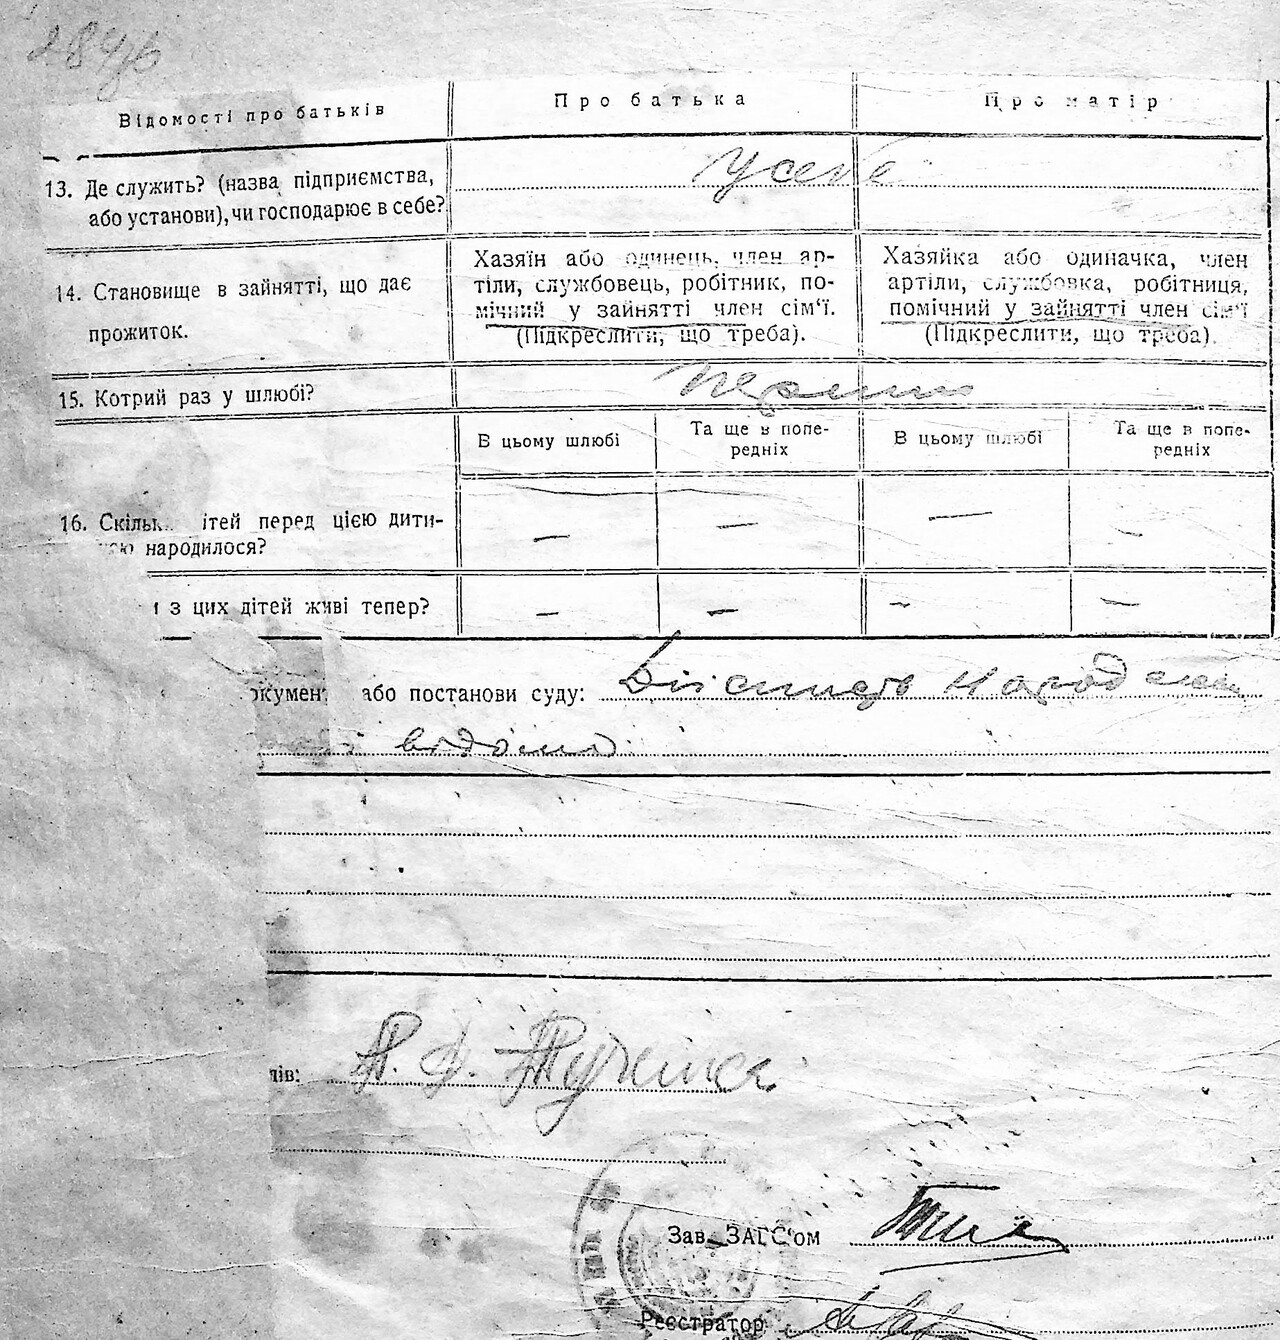 Відомості про батьків
Про батька
Про матір
13. Де служить? (назва підприємства,
або установи), чи господарює в себе?
У себе
14. Становище в зайнятті, що дає
прожиток.
Хазяїн або одинець, член ар-
тіли, службовець, робітник, по-
мічний у зайнятті член сім'ї.
(Підкреслити, що треба).
Хазяйка або одиначка, член
артіли, службовка, робітниця,
помічний у зайнятті член сім'ї
(Підкреслити, що треба).
15. Котрий раз у шлюбі?
Перший
В цьому шлюбі
Та ще в попе-
редніх
В цьому шлюбі
Та ще в попе-
редніх
16. Скільк ітей перед цією дити-
ю народилося?
— — — —
и з цих дітей живі тепер?
— — — —
окумент або постанови суду: народження
відомо
ів:
Зав. ЗАГС'ом
Реєстратор